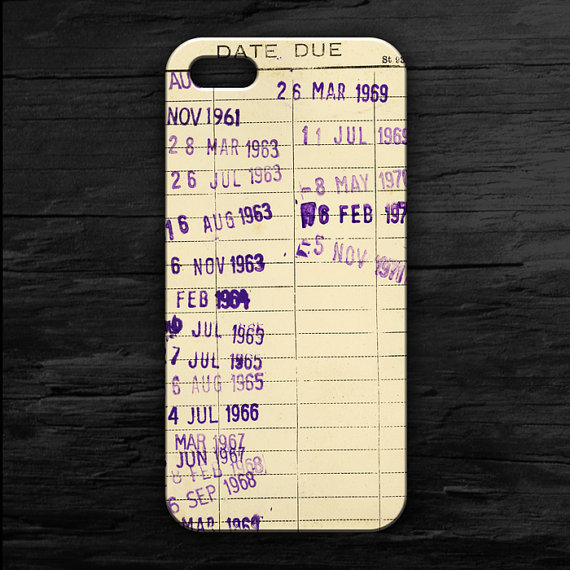 DATE DUE
St 93
AU
NOV 1961
28 MAR 1963
26 JUL 1963
16 AUG 1963
6 NOV 1963
FEB 1964
JUL 1965
7 JUL 1965
6 AUG 1965
4 JUL 1966
MAR 1967
JUN 1967
8 FEB 1968
6 SEP 1968
MAR 1969
26 MAR 1969
11 JUL 1969
-8 MAY 197
6 FEB 197
5 NOV 1971